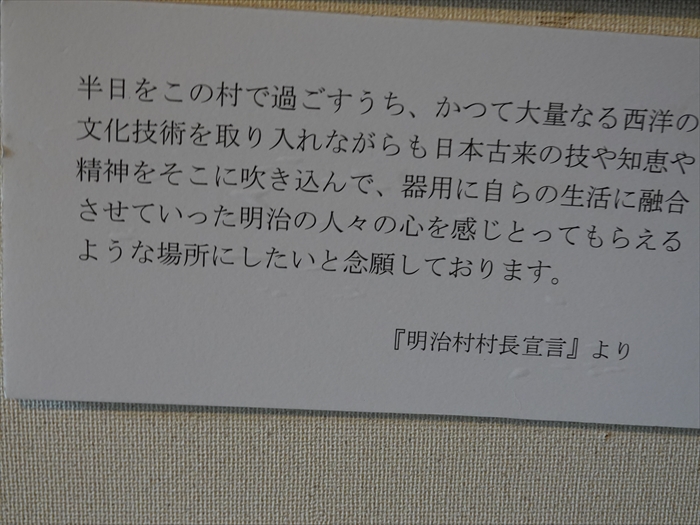 半日をこの村で過ごすうち、かつて大量なる西洋の
文化技術を取り入れながらも日本古来の技や知恵や
精神をそこに吹き込んで、器用に自らの生活に融合
させていった明治の人々の心を感じとってもらえる
ような場所にしたいと念願しております。
『明治村村長宣言』より